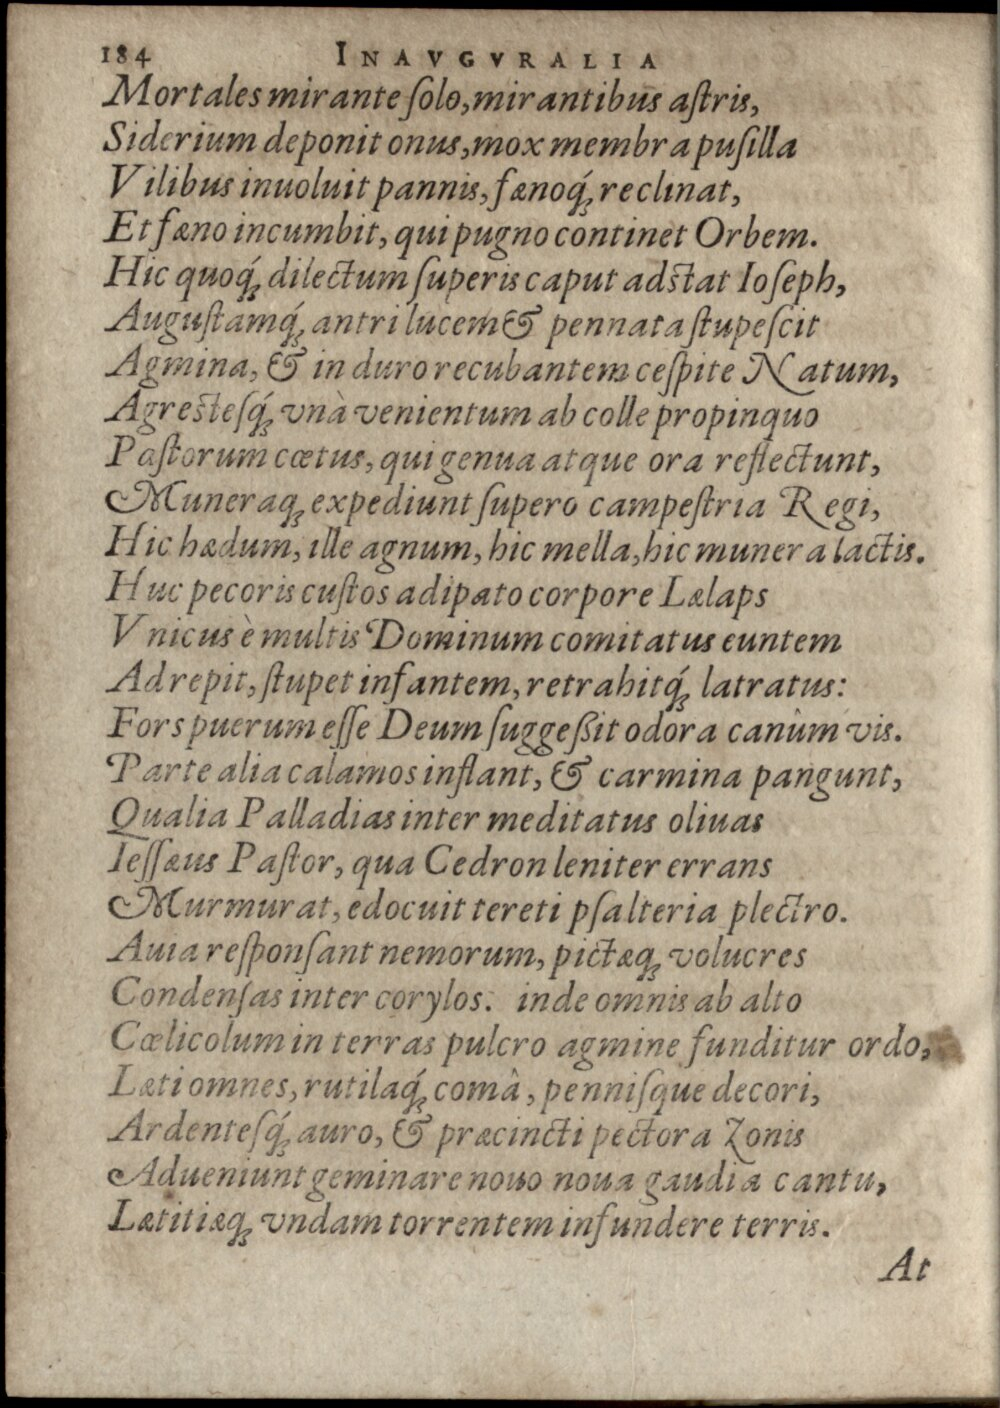 184 INAVGVRALIA
Mortales mirante ſolo, mirantibus aſtris,
Siderium deponit onus, mox membra puſilla
Vilibus inuoluit pannis, fænoq́; reclinat,
Et fæno incumbit, qui pugno continet Orbem.
Hic quoq́; dilectum ſuperis caput adſtat Ioſeph,
Auguſtamq́; antri lucem & pennata ſtupeſcit
Agmina, & in duro recubantem ceſpite Natum,
Agreſteſq́; vnà venientum ab colle propinquo
Paſtorum cœtus, qui genua atque ora reflectunt,
Muneraq; expediunt ſupero campeſtria Regi,
Hic hædum, ille agnum, hic mella, hic munera lactis.
Huc pecoris cuſtos adipato corpore Lælaps
Vnicus è multis Dominum comitatus euntem
Adrepit, ſtupet infantem, retrahitq́; latratus:
Fors puerum eſſe Deum ſuggeßit odora canûm vis.
Parte alia calamos inflant, & carmina pangunt,
Qualia Palladias inter meditatus oliuas
Ieſſæus Paſtor, qua Cedron leniter errans
Murmurat, edocuit tereti pſalteria plectro.
Auia reſponſant nemorum, pictæq; volucres
Condenſas inter corylos: inde omnis ab alto
Cœlicolum in terras pulcro agmine funditur ordo,
Læti omnes, rutilaq́; comâ, penniſque decori,
Ardenteſq́; auro, & præcincti pectora Zonis
Adueniunt geminare nouo noua gaudia cantu,
Lætitiæq; vndam torrentem infundere terris.
At